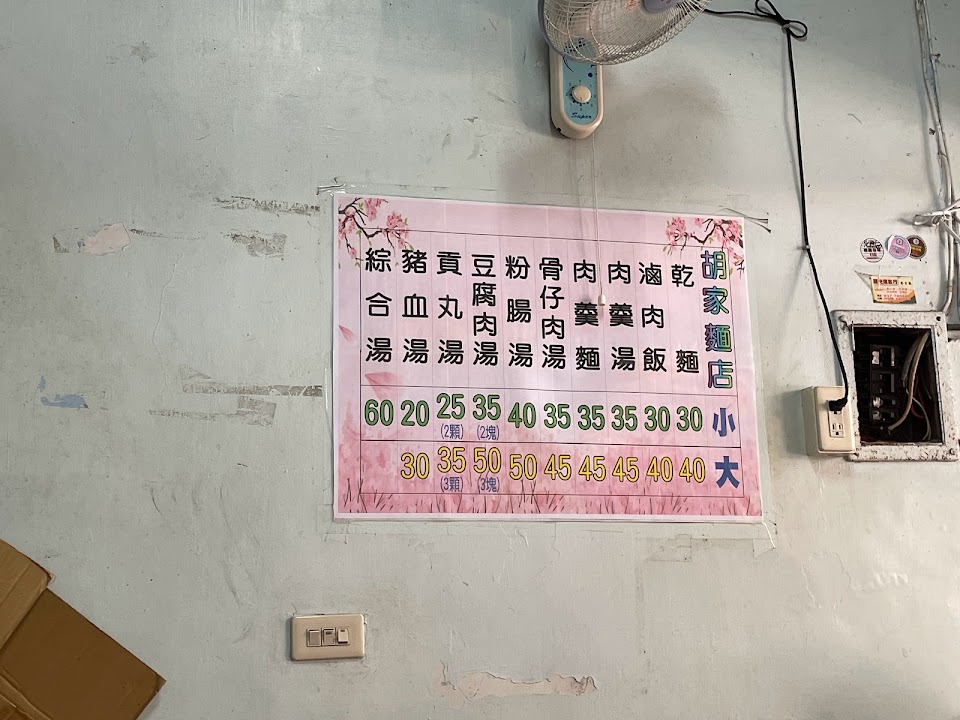 胡家麵店 小 大
乾麵 30 40
滷肉飯 30 40
肉羹湯 35 45
肉羹麵 35 45
骨仔肉湯 35 45
粉腸湯 40 50
豆腐肉湯 35 (2塊) 50 (3塊)
貢丸湯 25 (2顆) 35 (3顆)
豬血湯 20 30
綜合湯 60